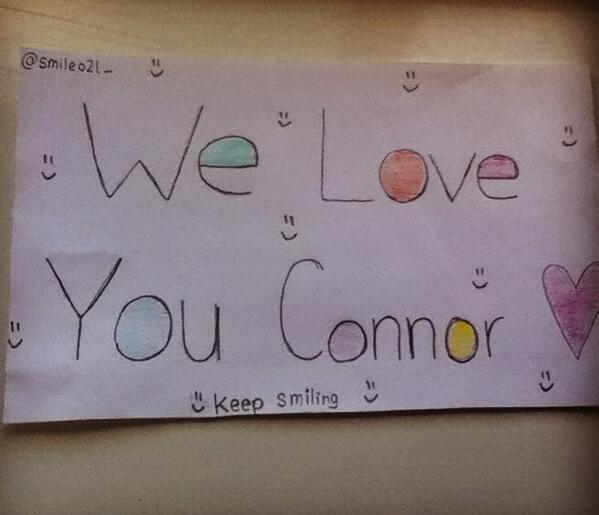 @smileo21_
We Love
You Connor
Keep smiling